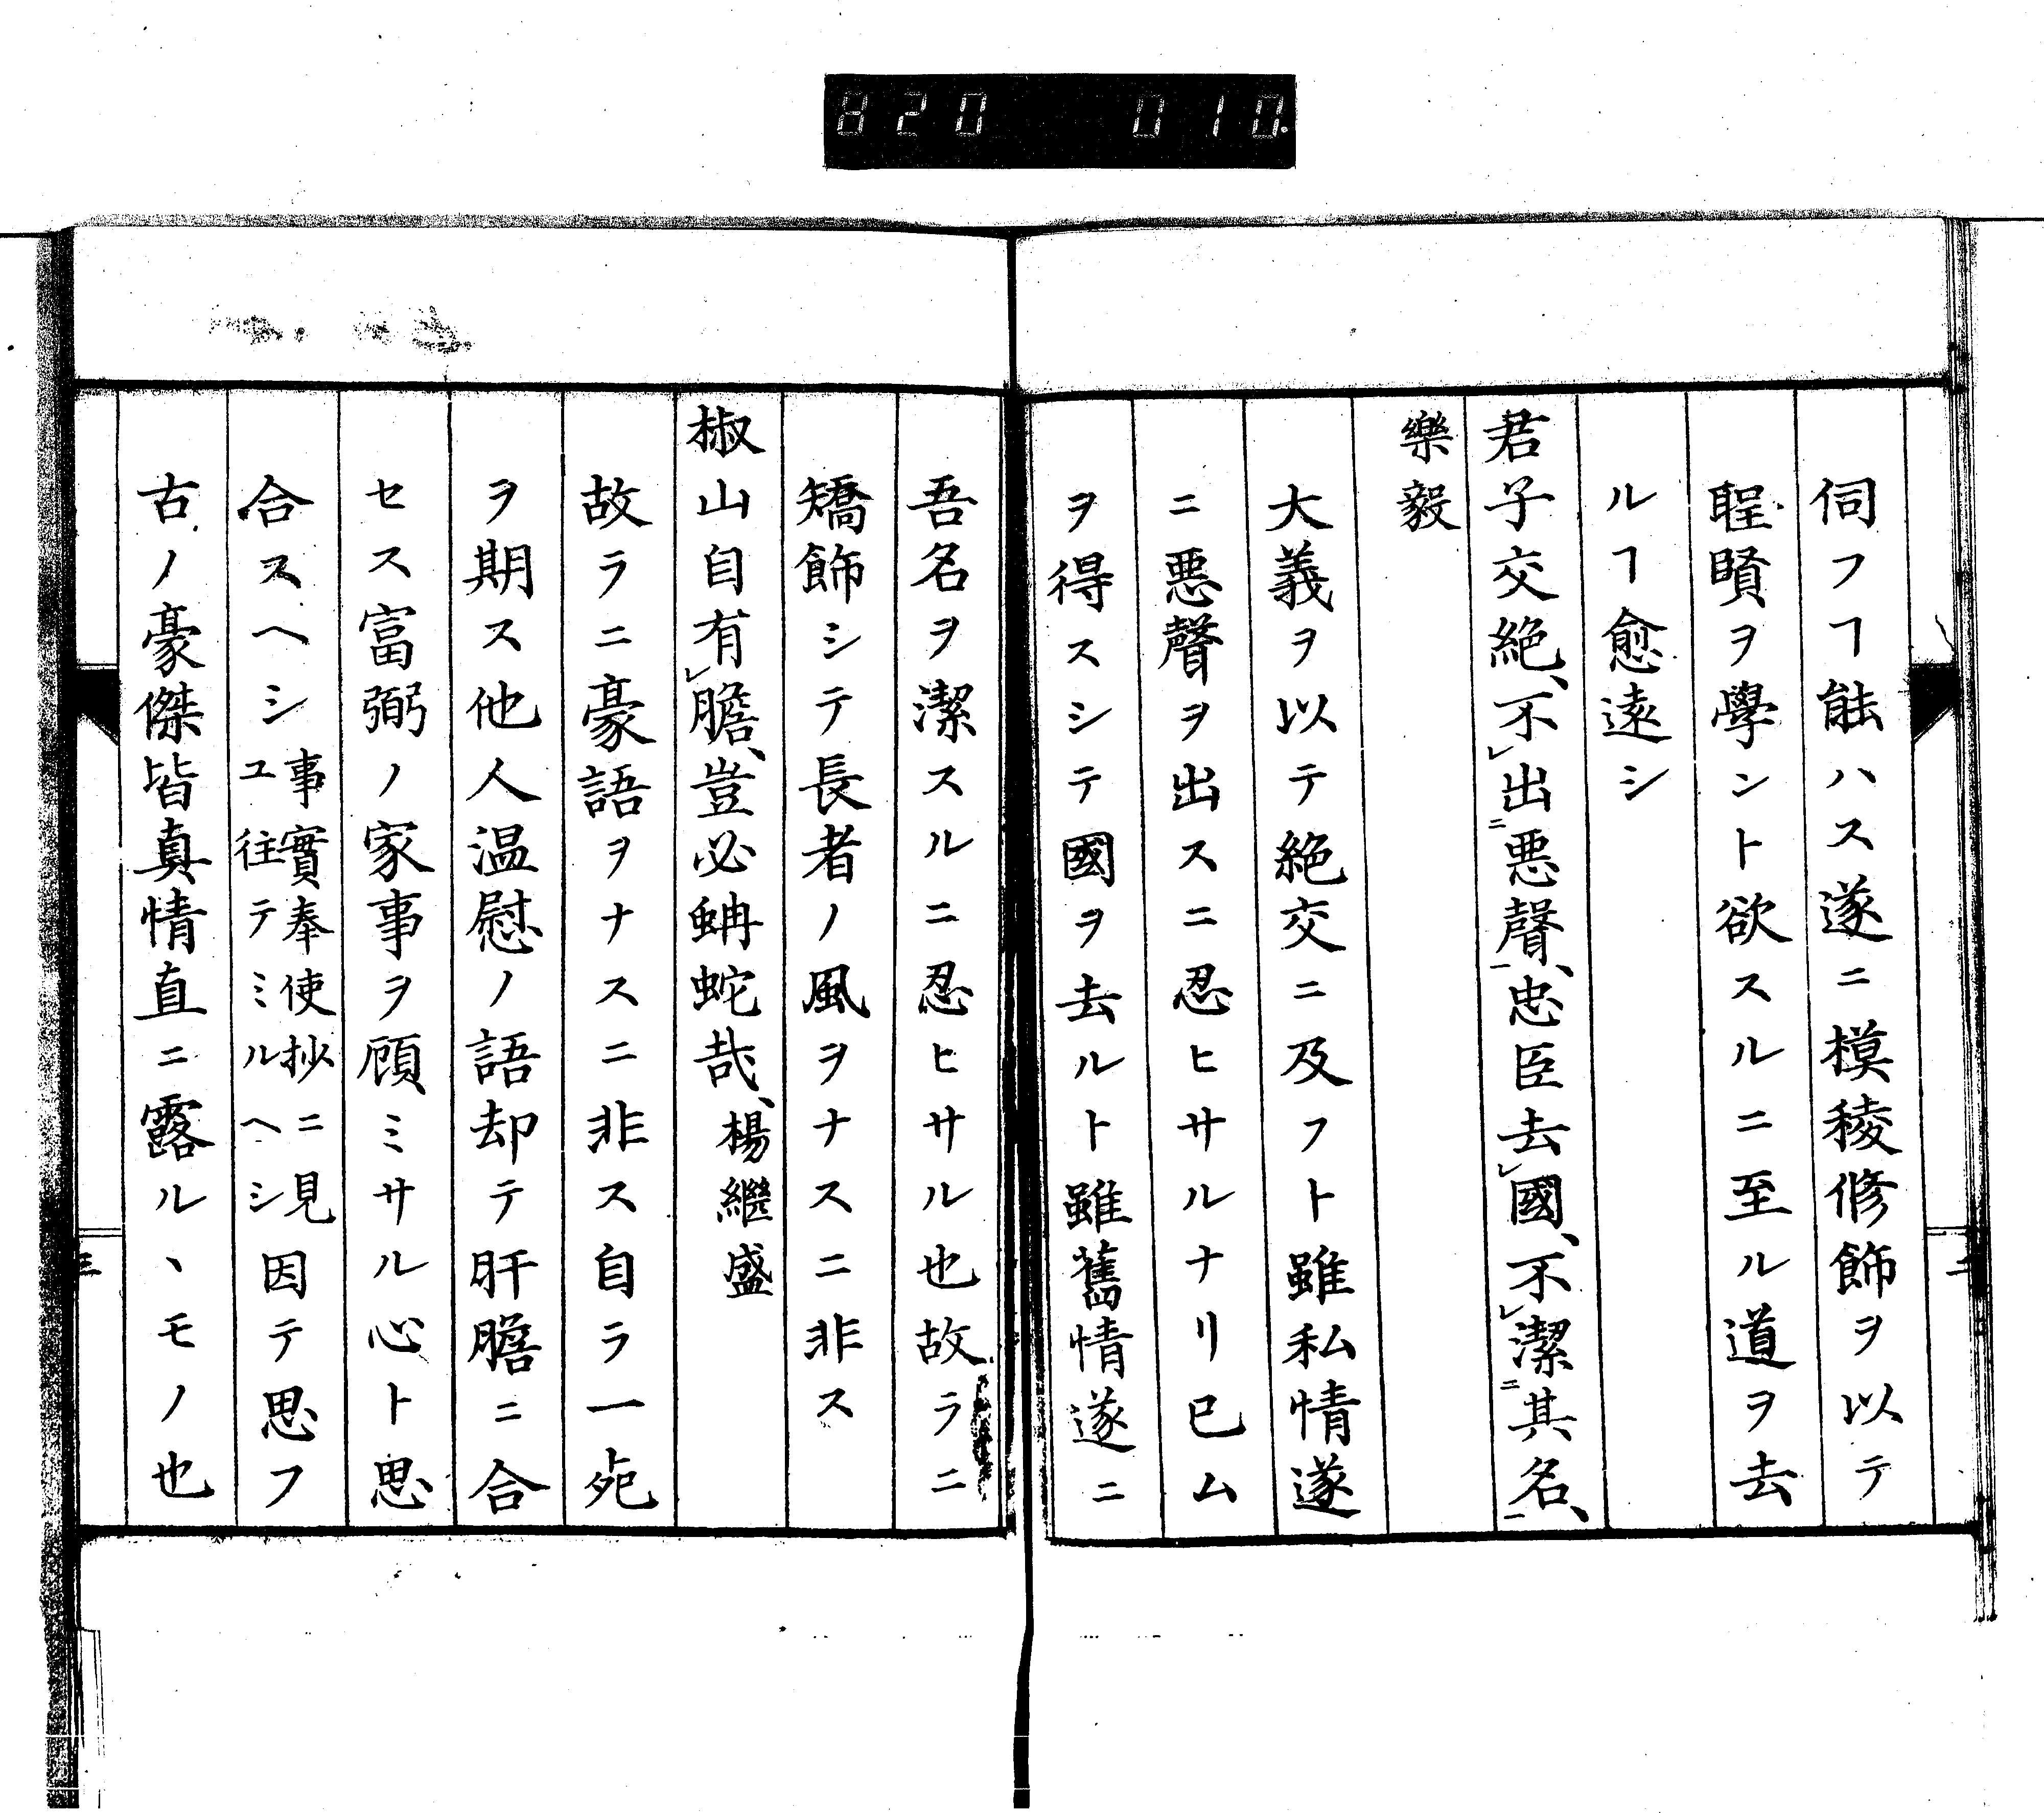 820 010.
伺フヿ能ハス遂ニ模稜修飾ヲ以テ
聖賢ヲ學ント欲スルニ至ル道ヲ去
ルヿ愈遠シ
君子交絶、不㆑出㆓悪聲㆒、忠臣去㆑國、不㆑潔㆓其名㆒、
樂毅
大義ヲ以テ絶交ニ及フト雖私情遂
ニ悪聲ヲ出スニ忍ヒサルナリ已ム
ヲ得スシテ國ヲ去ルト雖舊情遂ニ
二
吾名ヲ潔スルニ忍ヒサル也故ラニ
矯飾シテ長者ノ風ヲナスニ非ス
椒山自有㆑膽、豈必蚺蛇哉、楊繼盛
故ラニ豪語ヲナスニ非ス自ラ一死
ヲ期ス他人温慰ノ語却テ肝膽ニ合
セス富弼ノ家事ヲ顧ミサル心ト思
合スヘシ事實奉使抄ニ見ユ往テミルヘシ因テ思フ
古ノ豪傑皆真情直ニ露ルヽモノ也
三